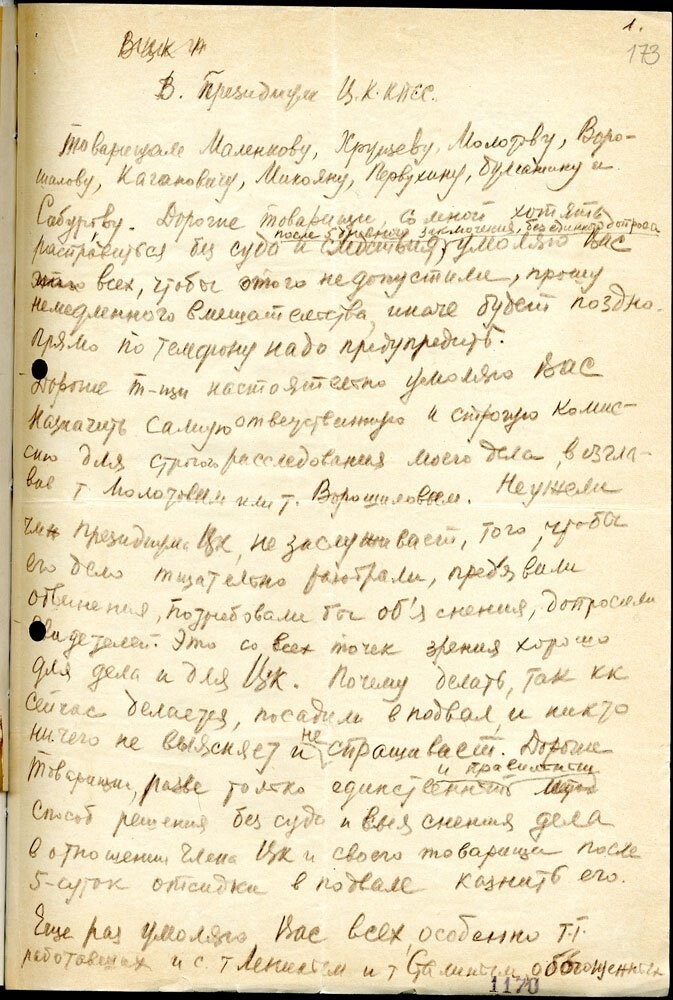 1.
173
В ЦК
В. Президиум Ц.К.КПСС.
Товарищам Маленкову, Хрущеву, Молотову, Воро-
шилову, Кагановичу, Микояну, Первухину, Булганину и
Сабурову. Дорогие товарищи, со мной хотят
после 5 дневного заключения, без единного допроса
расправиться без суда и следствия, умоляю Вас
всех, чтобы этого не допустили, прошу
немедленного вмешательства, иначе будет поздно.
Прямо по телефону надо предупредить.
Дорогие т-щи настоятельно умоляю Вас
назначить самую ответственную и строгую комис-
сию для строгого расследования моего дела, возгла-
ве т Молотовым или т. Ворошиловым. Неужели
член Президиума ЦК, не заслуживает, того, чтобы
его дело тщательно разобрали, предъявили
обвинения, потребовали бы об'яснения, допросили
свидетелей. Это со всех точек зрения хорошо
для дела и для ЦК. Почему делать, так кк
сейчас делается, посадили в подвал, и никто
ничего не выясняет и не спрашивает. Дорогие
товарищи, разве только единственный и правильный
способ решения без суда и выяснения дела
в отношении Члена ЦК и своего товарища после
5-суток отсидки в подвале казнить его.
Еще раз умоляю Вас всех, особенно т.т.
работавших и с. т Лениным и т Сталиным, обогощенных
1170